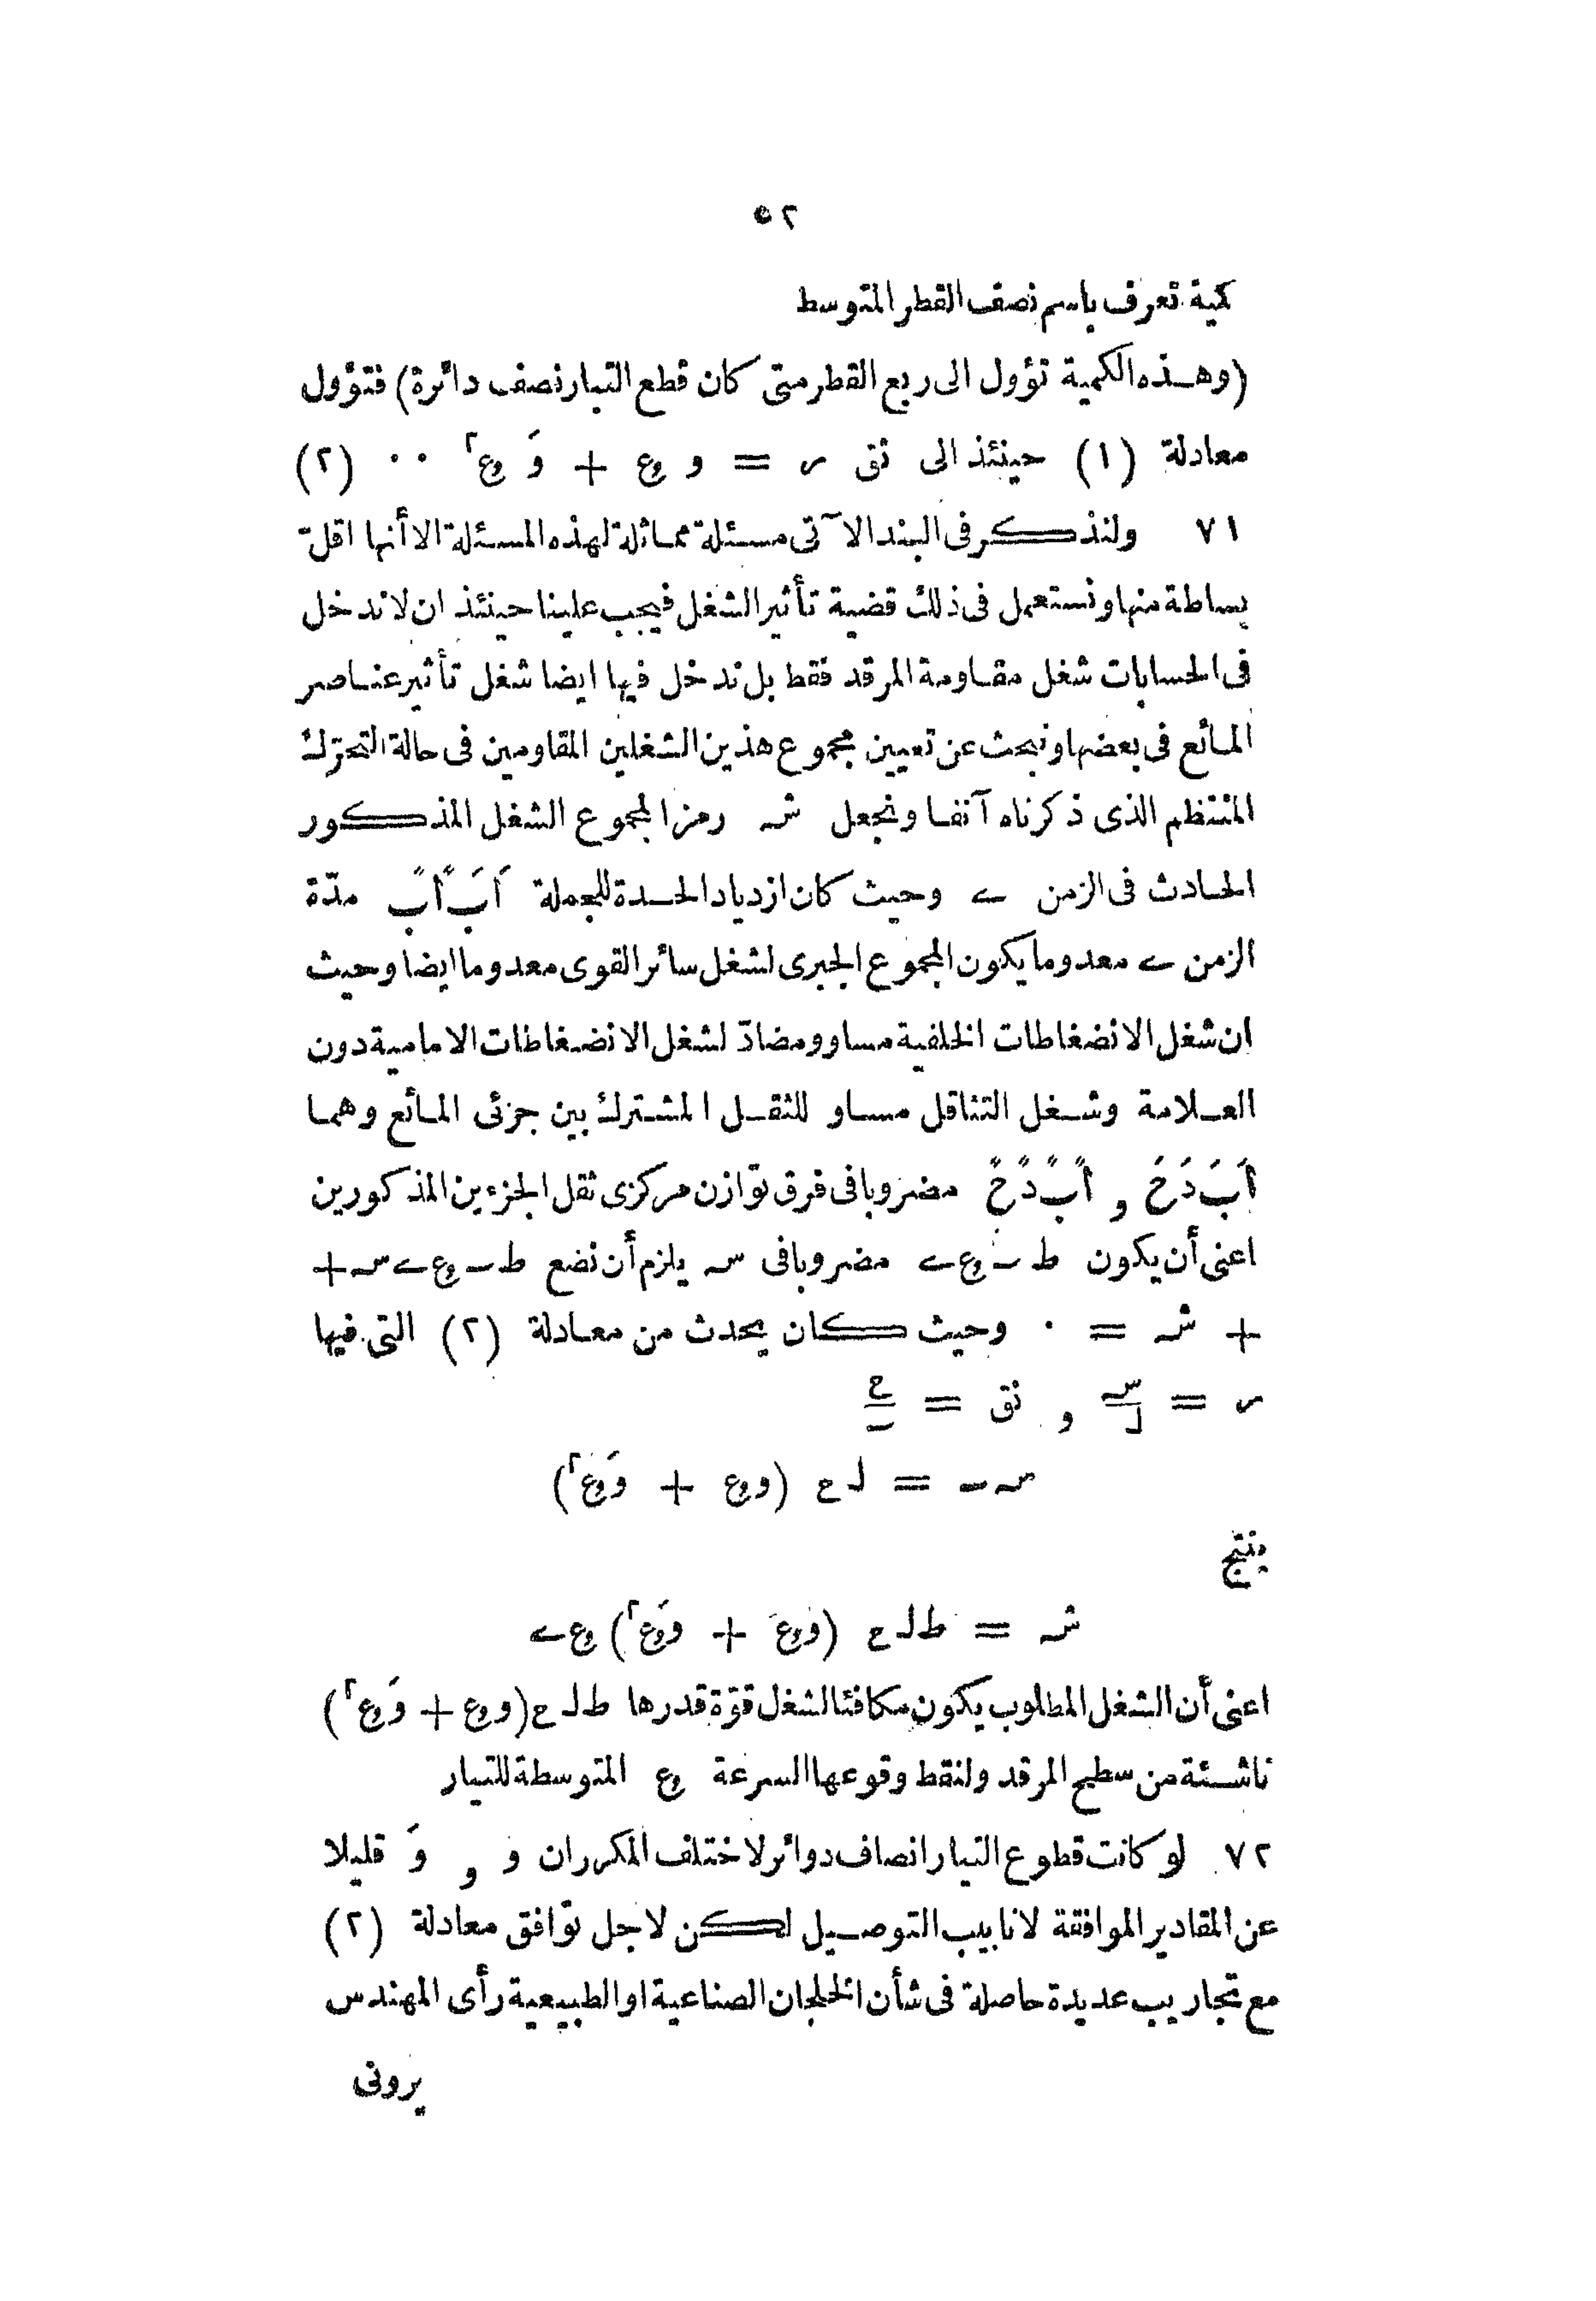 ٥٢
كمية تعرف باسم نصف القطر المتوسط
(وهذه الكمية تؤول الى ربع القطر متى كان قطع التيار نصف دائرة) فتؤول
معادلة (١) حينئذ الى نق ر = و ع + وَ ع٢ ٠٠ (٢)
٧١ ولنذكر فى البند الآتى مسئلة مماثلة لهذه المسئلة الا أنها اقل
بساطة منها ونستعمل فى ذلك قضية تأثير الشغل فيجب علينا حينئذ ان لا ندخل
فى الحسابات شغل مقاومة المرقد فقط بل ندخل فيها ايضا شغل تأثير عناصر
المائع فى بعضها ونبحث عن تعيين مجموع هذين الشغلين المقاومين فى حالة التحرّك
المنتظم الذى ذكرناه آنفا ونجعل شہ رمزا لمجموع الشغل المذكور
الحادث فى الزمن ے وحيث كان ازدياد الحدة للجملة اَبَ اًبً مدّة
الزمن ے معدوما يكون المجموع الجبرى لشغل سائر القوى معدوما ايضا وحيث
ان شغل الانضغاطات الخلفية مساو ومضادّ لشغل الانضغاطات الامامية دون
العلامة وشغل التثاقل مساو للثقل المشترك بين جزئى المائع وهما
اَبَ دَحَ و اًبً دًحً مضروبا فى فرق توازن مركزى ثقل الجزءين المذكورين
اعنى أن يكون ط ـ ع ے مضروبا فى سہ يلزم أن نضع ط ـ ع ے سہ +
+ شہ = ٠ وحيث كان يحدث من معادلة (٢) التى فيها
ر = سہ/ل و نق = ـ/ح
سہ ـ = ل ح (و ع + وَ ع٢)
ينتج
شہ = ط ل ح (و ع + وَ ع٢) ع ے
اعنى أن الشغل المطلوب يكون مكافئا لشغل قوّة قدرها ط ل ح (و ع + وَ ع٢)
ناشئة من سطح المرقد ولنقط وقوعها السرعة ع المتوسطة للتيار
٧٢ لو كانت قطوع التيار انصاف دوائر لاختلف المكرران و و وَ قليلا
عن المقادير الموافقة لانابيب التوصيل لكن لاجل توافق معادلة (٢)
مع تجاريب عديدة حاصلة فى شأن الخلجان الصناعية او الطبيعية رأى المهندس
يرونى